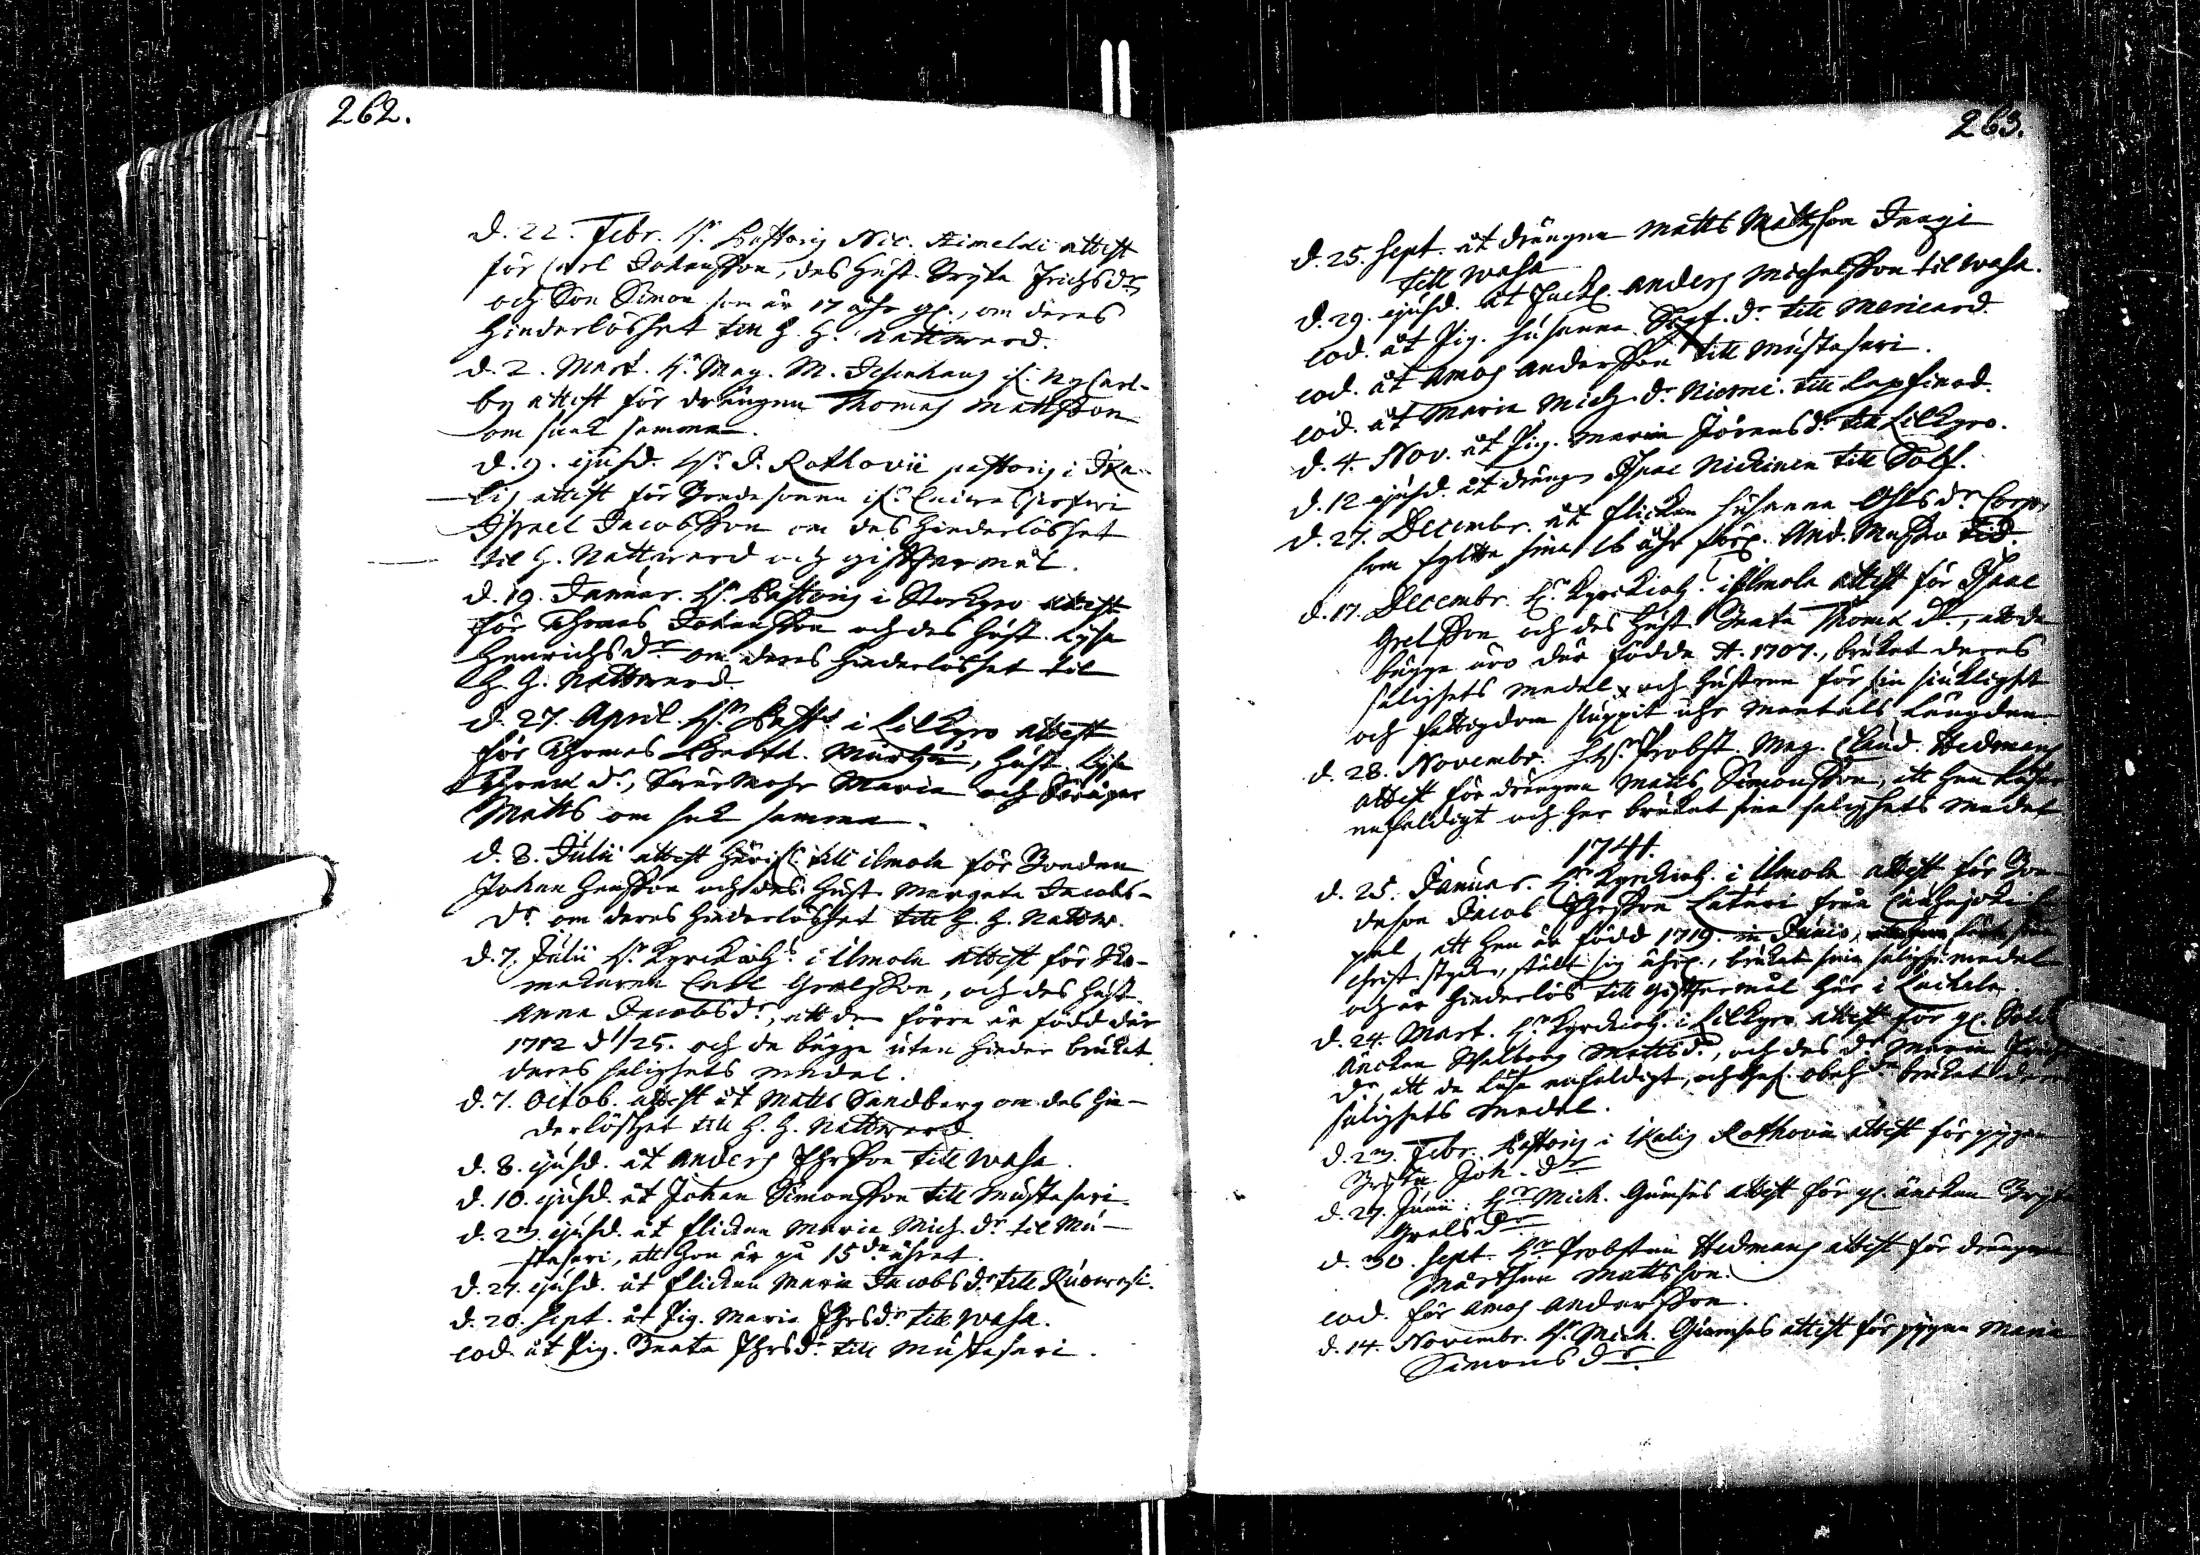 262.
d. 22. Febr. Hr. Pastoris Nic. Aimelæi attest
för Carl Johansson, des hust. Brijta Erichsdr
och Son Simon som är 17 åhr gl., om deres
hinderlöshet till H. H. Nattward.
d. 2. Mart. Hr. Mag. M. i Ny Carl-
by attest för drängen Thomas Mattsson
om samma.
d. 9. ejusd. Hr. J. Rothovii pastoris i Ika-
lis attest för Bondesonen
Israel Jacobsson om des hinderlöshet
til H. Nattward och gifftermål.
d. 19. Januar. Hr. Pastoris i Storkyro attest
för Thomas Johansson och des hust. Lijsa
Henrichsdr om deres hinderlöshet til
H. H. Nattward.
d. 27. April. Hr Past. i Lillkyro attest
för Thomas Murtu, hust. Lijsa
Thomædr, Maria och
Matts om samma.
d. 8. Julii attest till Ilmola för Bonden
Johan Hansson och des hust. Margeta Jacobs-
dr om deres hinderlöshet till H. H. Nattw.
d. 7. Julii Hr Kyrckioh. i Ilmola attest för Sko-
makaren Carl Grelsson, och des hust.
Anna Jacobsdr, att den förre är född der
1712 d 1/25. och de begge utan hinder brukat
deres salighets medel.
d. 7. Octob. attest åt Matts Sandberg om des hin-
derlöshet till H. H. Nattward.
d. 8. ejusd. åt Anders Thsson till Wasa.
d. 10. ejusd. åt Johan Simonsson till Mustasari.
d. 23. ejusd. åt flickan Maria Mich.dr til Mu-
stasari, att hon är på 15de åhret.
d. 27. ejusd. åt flickan Maria Jacobsdr till Ruovesi.
d. 20. Sept. åt Pig. Maria Thsdr till Wasa.
eod. åt Pig. Beata Thsdr till Mustasari.
263.
d. 25. Sept. åt drängen Matts Mattsson
till Wasa
d. 29. ejusd. åt Anders Michelsson til Wasa.
eod. åt Pig. Susanna dr till Mericard.
eod. åt Amos Andersson till Mustasari.
eod. åt Maria Mich.dr Niemi till Lapfierd.
d. 4. Nov. åt Pig. Maria Jöransdr till Lillkyro.
d. 12 ejusd. åt dräng. Isaac Nickinen till Solf.
d. 27. Decembr. åt flickan Susanna
som fyllte sina 16 åhr And.
d. 17. Decembr. Hr Kyrckioh. i Ilmola attest för Isaac
Grelsson och des hust. Beata Thomædr, att de
begge äro der födde A. 1707., brukat deres
salighets medel och hustrun för sin siuklighet
och fattigdom sluppit uhr Mantals Längden
d. 28. Novembr. Hr Probst. Mag. Claud. Hedmans
attest för drängen Matts Simonsson, att han läser
enfaldigt och har brukat sina salighets medel
1741.
d. 25. Januar. Hr Kyrckioh. i Ilmola attest för Bon-
deson Jacob Thsson Laturi från Cauhajoki
att han är född 1719. in Junio,
Christ. stycke, stält sig ährl., brukat sina saligh. medel
och är hinderlös till gifftermål här i Laihela.
d. 24. Mart. Hr Kyrckioh. i Lillkyro attest för gl. Sold.
änckan Walborg Mattsdr, och des dr Maria
dr att de läsa enfaldigt, och brukat deres
salighets medel.
d. 23. Febr. Pastoris i Ikalis Rothovii attest för pigan
Brijta Joh.dr
d. 27. Junii. Hr Mich. attest för gl. änckan Brijta
Grelsdr
d. 30. Sept. Hr Probsten Hedmans attest för drängen
Mårthen Mattsson.
eod. för Amos Andersson.
d. 14. Novembr. Hr Mich. attest för pigan Maria
Simonsdr